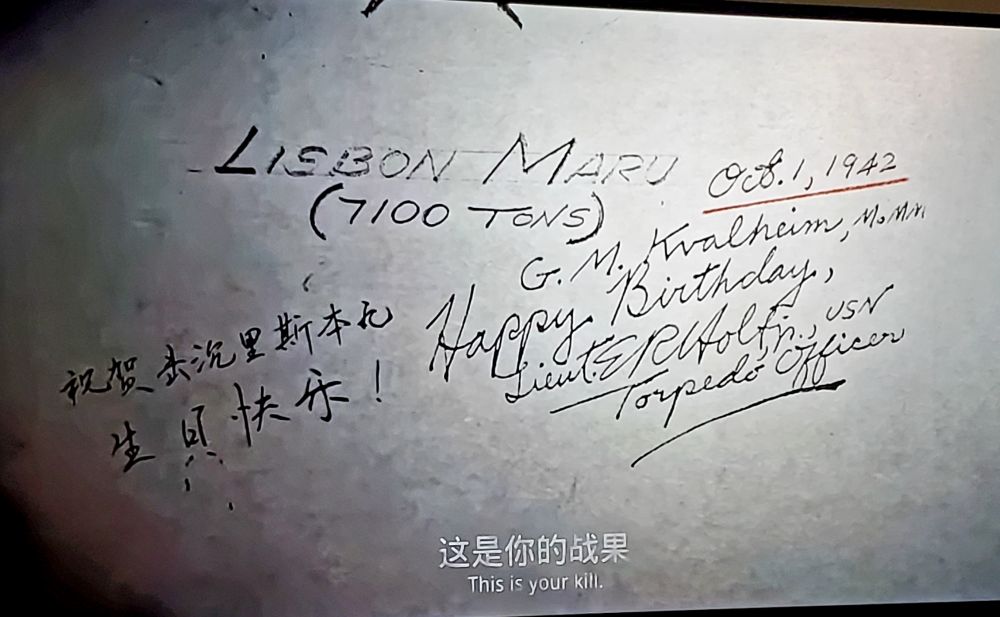 LISBON MARU
(7100 TONS)
Oct. 1, 1942
G. M. Kvalheim, MoMM
Happy Birthday,
Lieut. E R Holt, Jr., USN
Torpedo Officer
祝贺击沉里斯本丸
生日快乐！
这是你的战果
This is your kill.